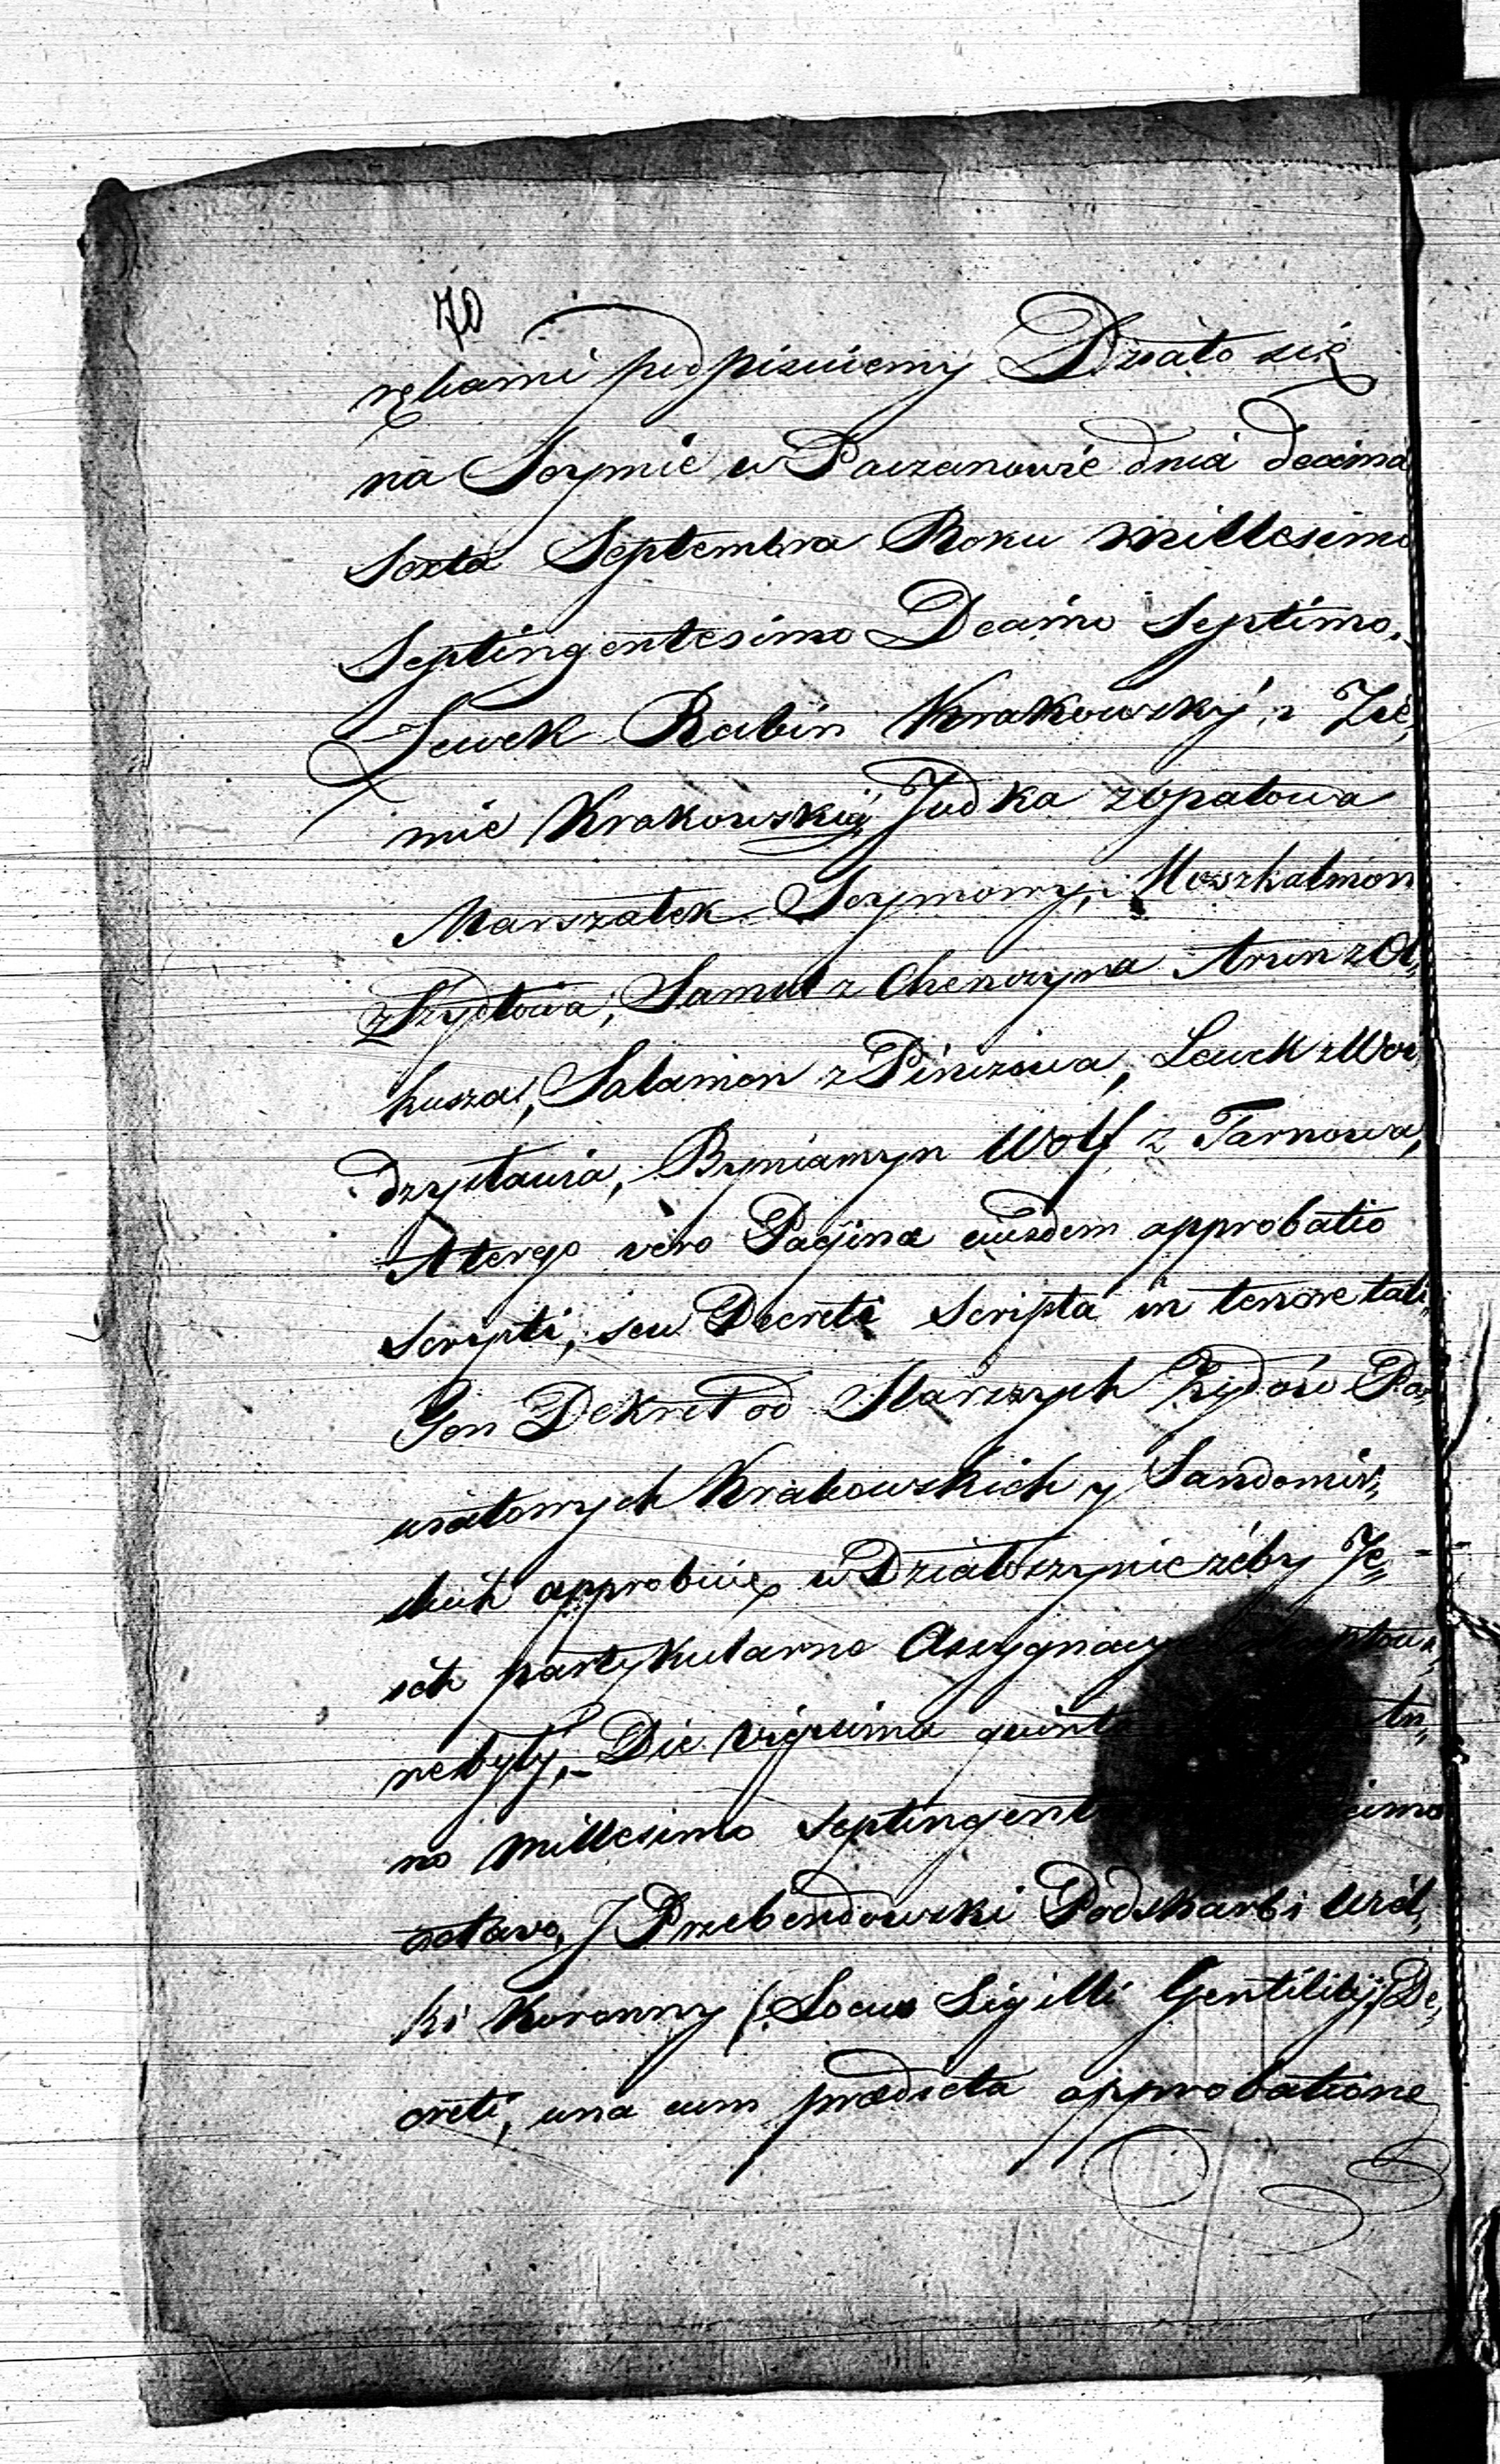 70
rękami podpisuiemy Działo się
na Seymie w Paczanowie dnia decima
Sexta Septembra Roku Millesimo
Septingentesimo Decimo Septimo.
Lewek Rabin Krakowsky, i Zie„
mie Krakowskiȩy Judka zopatowa
Marszałek Seymowy, i Moszkalmon
z Szydłowa, Samul z Chenczyna Arun z Ol„
kusza, Salamon z Pinczowa, Lewek z Wo„
dzysławia, Byniamyn Wolf z Tarnowa,
A tergo vero Pagina eiusdem approbatio
scripti, seu Decreti Scripta in tenore tali
Ten Dekret od Starszych Żydów Po„
wiatowych Krakowskich y Sandomir„
skich approbuię w Działoszynie żeby Je„
ich partykularne Assygnacye
nebyły, Die vigesima quinta
no Millesimo Septingent
octavo, J Przebendowski Podskarbi Wiel„
ki Koronny /: Locus Sigilli Gentility:/ De„
creti, una cum prædicta approbatione